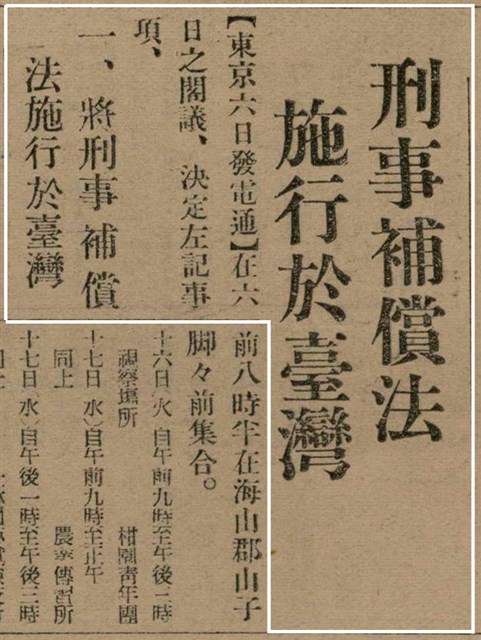 刑事補償法
施行於臺灣
【東京六日發電通】在六
日之閣議、決定左記事
項、
一、將刑事補償
法施行於臺灣
前八時半在海山郡山子
脚々前集合。
十六日(火)自午前九時至午後三時
視察塲所 柑園靑年團
十七日(水)自午前九時至正午
同上 農業傳習所
十七日(水)自午後一時至午後三時